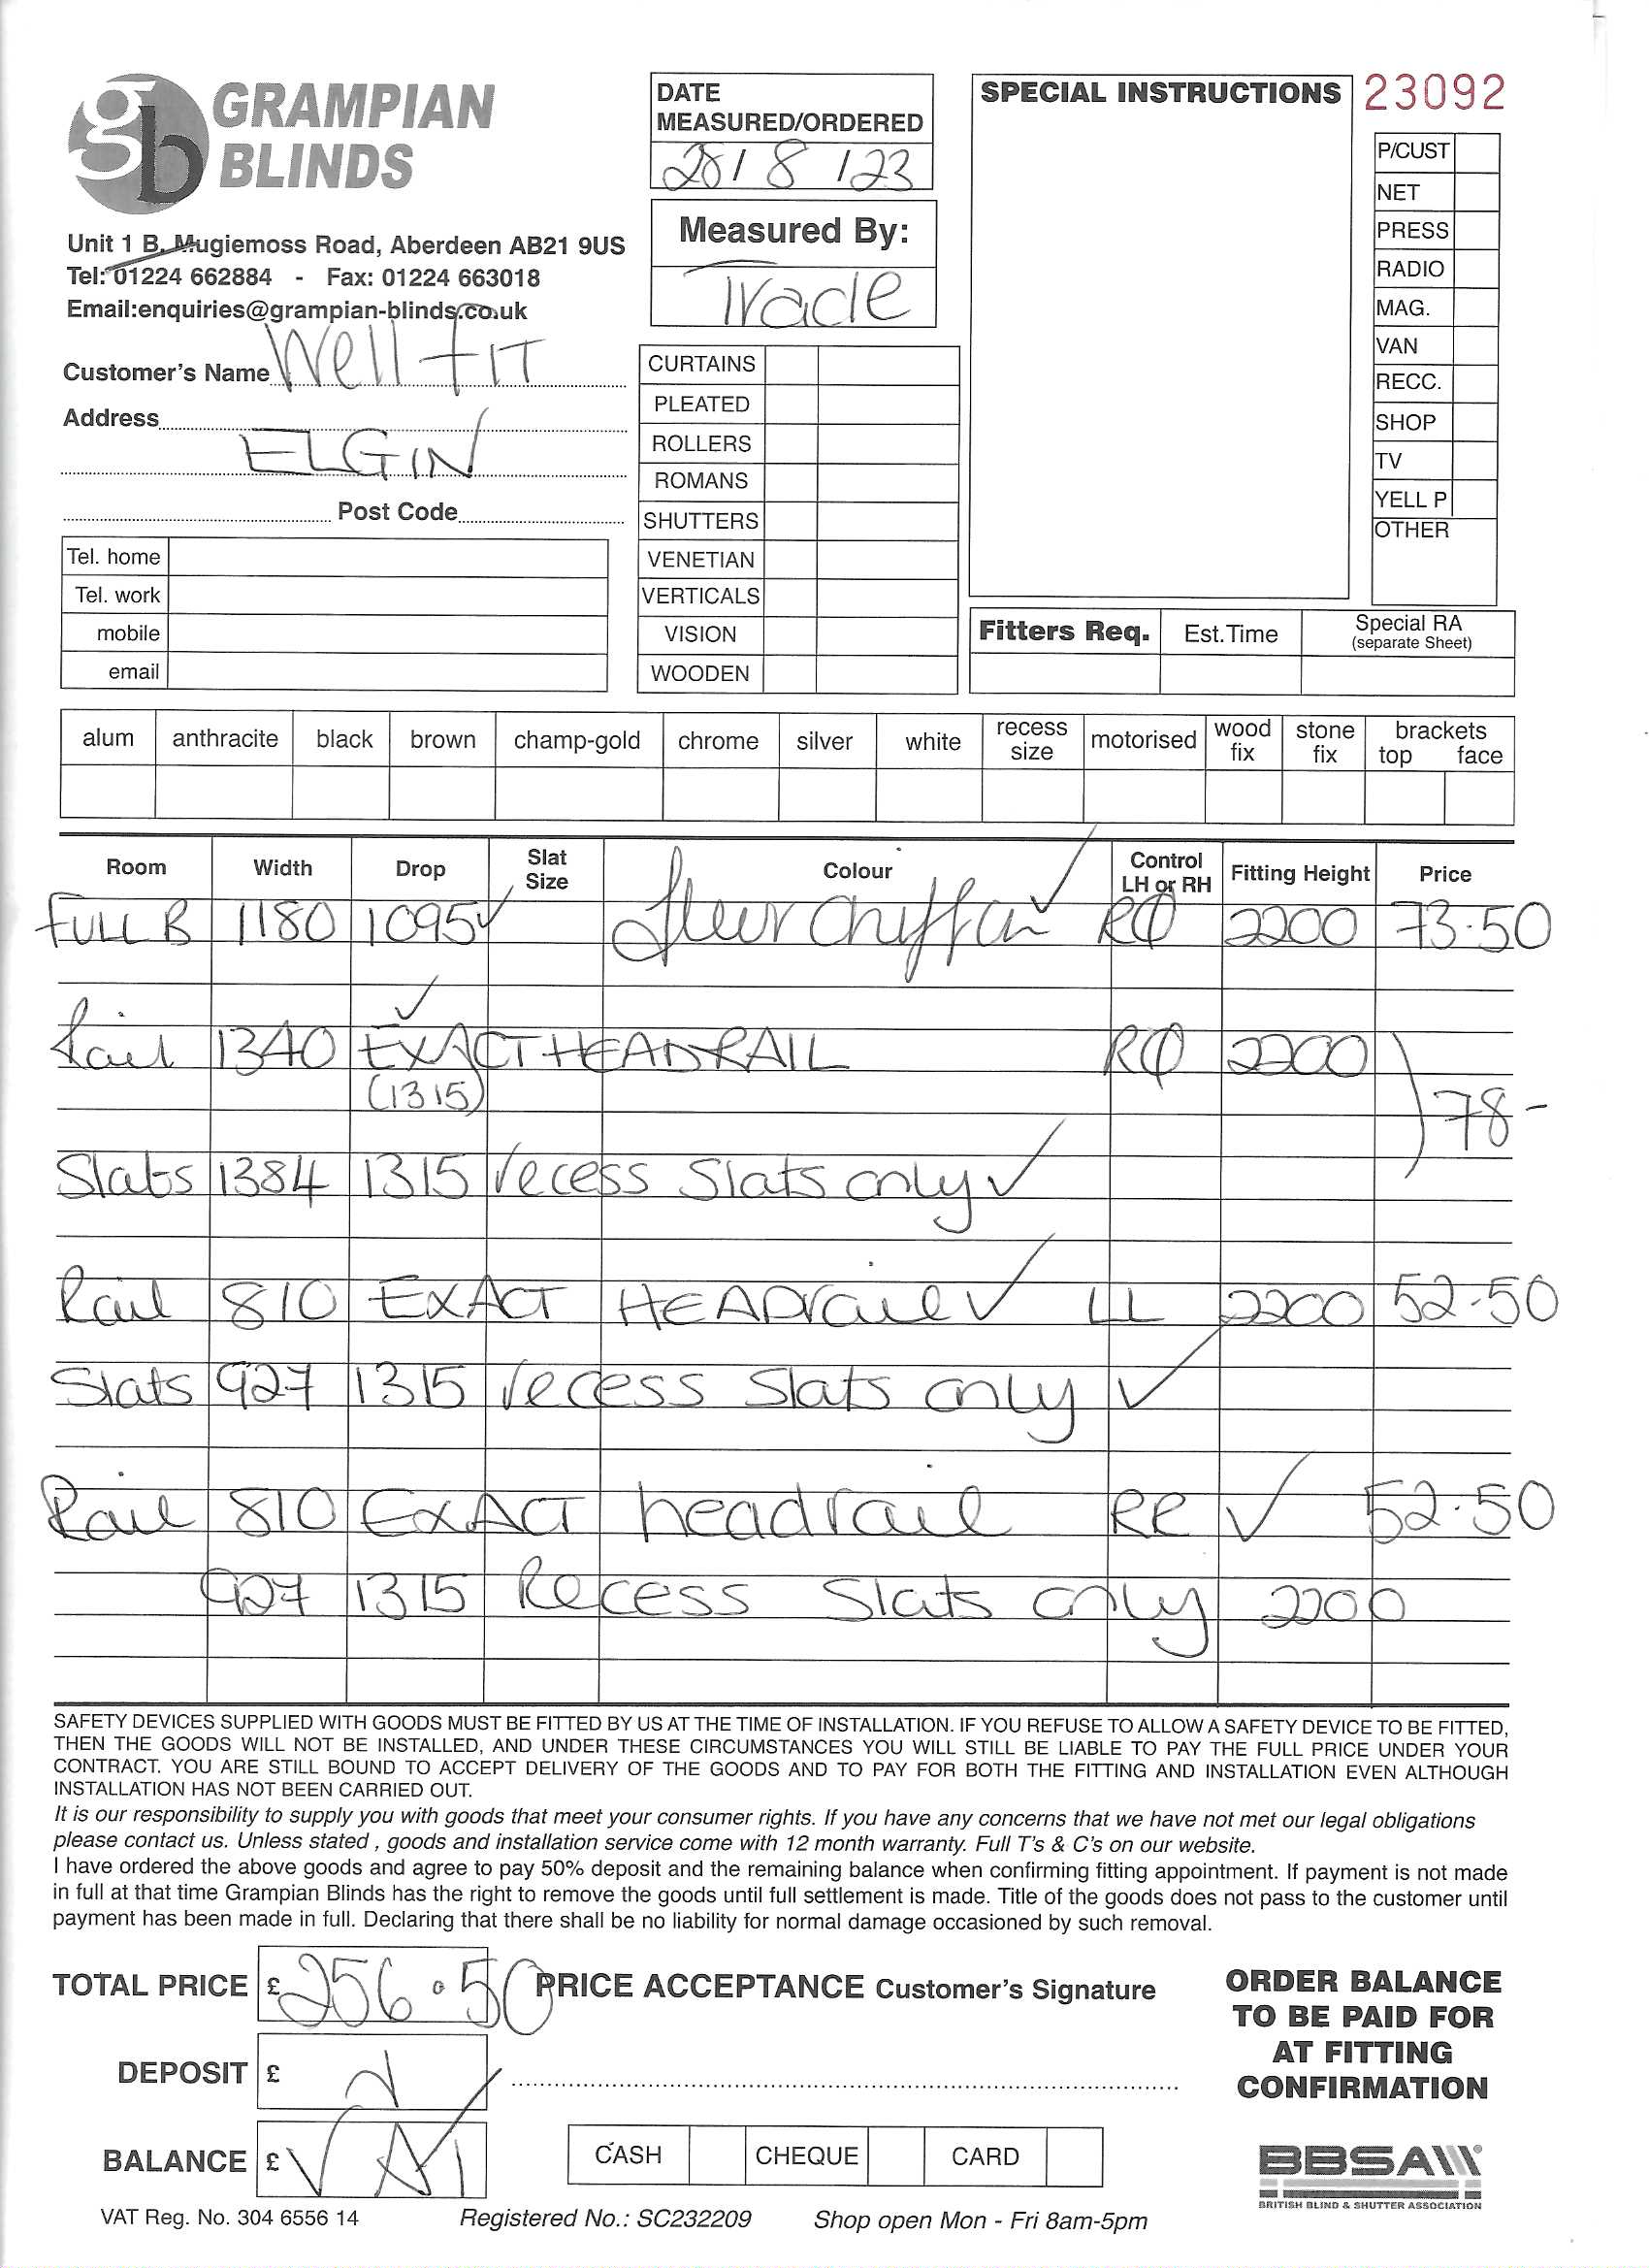 GRAMPIAN
BLINDS
Unit 1 B, Mugiemoss Road, Aberdeen AB21 9US
Tel: 01224 662884 - Fax: 01224 663018
Email:enquiries@grampian-blinds.co.uk
Customer's Name Well fIT
Address
ELGIN
Post Code
Tel. home
Tel. work
mobile
email
DATE
MEASURED/ORDERED
28/8/23
Measured By:
Trade
CURTAINS
PLEATED
ROLLERS
ROMANS
SHUTTERS
VENETIAN
VERTICALS
VISION
WOODEN
SPECIAL INSTRUCTIONS
23092
P/CUST
NET
PRESS
RADIO
MAG.
VAN
RECC.
SHOP
TV
YELL P
OTHER
Fitters Req. Est.Time Special RA
(separate Sheet)
alum anthracite black brown champ-gold chrome silver white recess size motorised wood fix stone fix brackets top face
Room Width Drop Slat Size Colour Control LH or RH Fitting Height Price
FULL B 1180 1095 ✓ fleur Chiffon ✓ RØ 2200 73.50
✓
Rail 1340 EXACT HEADRAIL RØ 2200
(1315) 78-
Slats 1384 1315 recess Slats only ✓
Rail 810 EXACT HEADrail ✓ LL 2200 52-50
Slats 927 1315 recess Slats only ✓
Rail 810 EXACT headrail RR ✓ 52.50
927 1315 Recess Slats only 2200
SAFETY DEVICES SUPPLIED WITH GOODS MUST BE FITTED BY US AT THE TIME OF INSTALLATION. IF YOU REFUSE TO ALLOW A SAFETY DEVICE TO BE FITTED,
THEN THE GOODS WILL NOT BE INSTALLED, AND UNDER THESE CIRCUMSTANCES YOU WILL STILL BE LIABLE TO PAY THE FULL PRICE UNDER YOUR
CONTRACT. YOU ARE STILL BOUND TO ACCEPT DELIVERY OF THE GOODS AND TO PAY FOR BOTH THE FITTING AND INSTALLATION EVEN ALTHOUGH
INSTALLATION HAS NOT BEEN CARRIED OUT.
It is our responsibility to supply you with goods that meet your consumer rights. If you have any concerns that we have not met our legal obligations
please contact us. Unless stated , goods and installation service come with 12 month warranty. Full T's & C's on our website.
I have ordered the above goods and agree to pay 50% deposit and the remaining balance when confirming fitting appointment. If payment is not made
in full at that time Grampian Blinds has the right to remove the goods until full settlement is made. Title of the goods does not pass to the customer until
payment has been made in full. Declaring that there shall be no liability for normal damage occasioned by such removal.
TOTAL PRICE £ 256.50
PRICE ACCEPTANCE Customer's Signature
DEPOSIT £
BALANCE £
CASH CHEQUE CARD
ORDER BALANCE
TO BE PAID FOR
AT FITTING
CONFIRMATION
BBSA
BRITISH BLIND & SHUTTER ASSOCIATION
VAT Reg. No. 304 6556 14 Registered No.: SC232209 Shop open Mon - Fri 8am-5pm